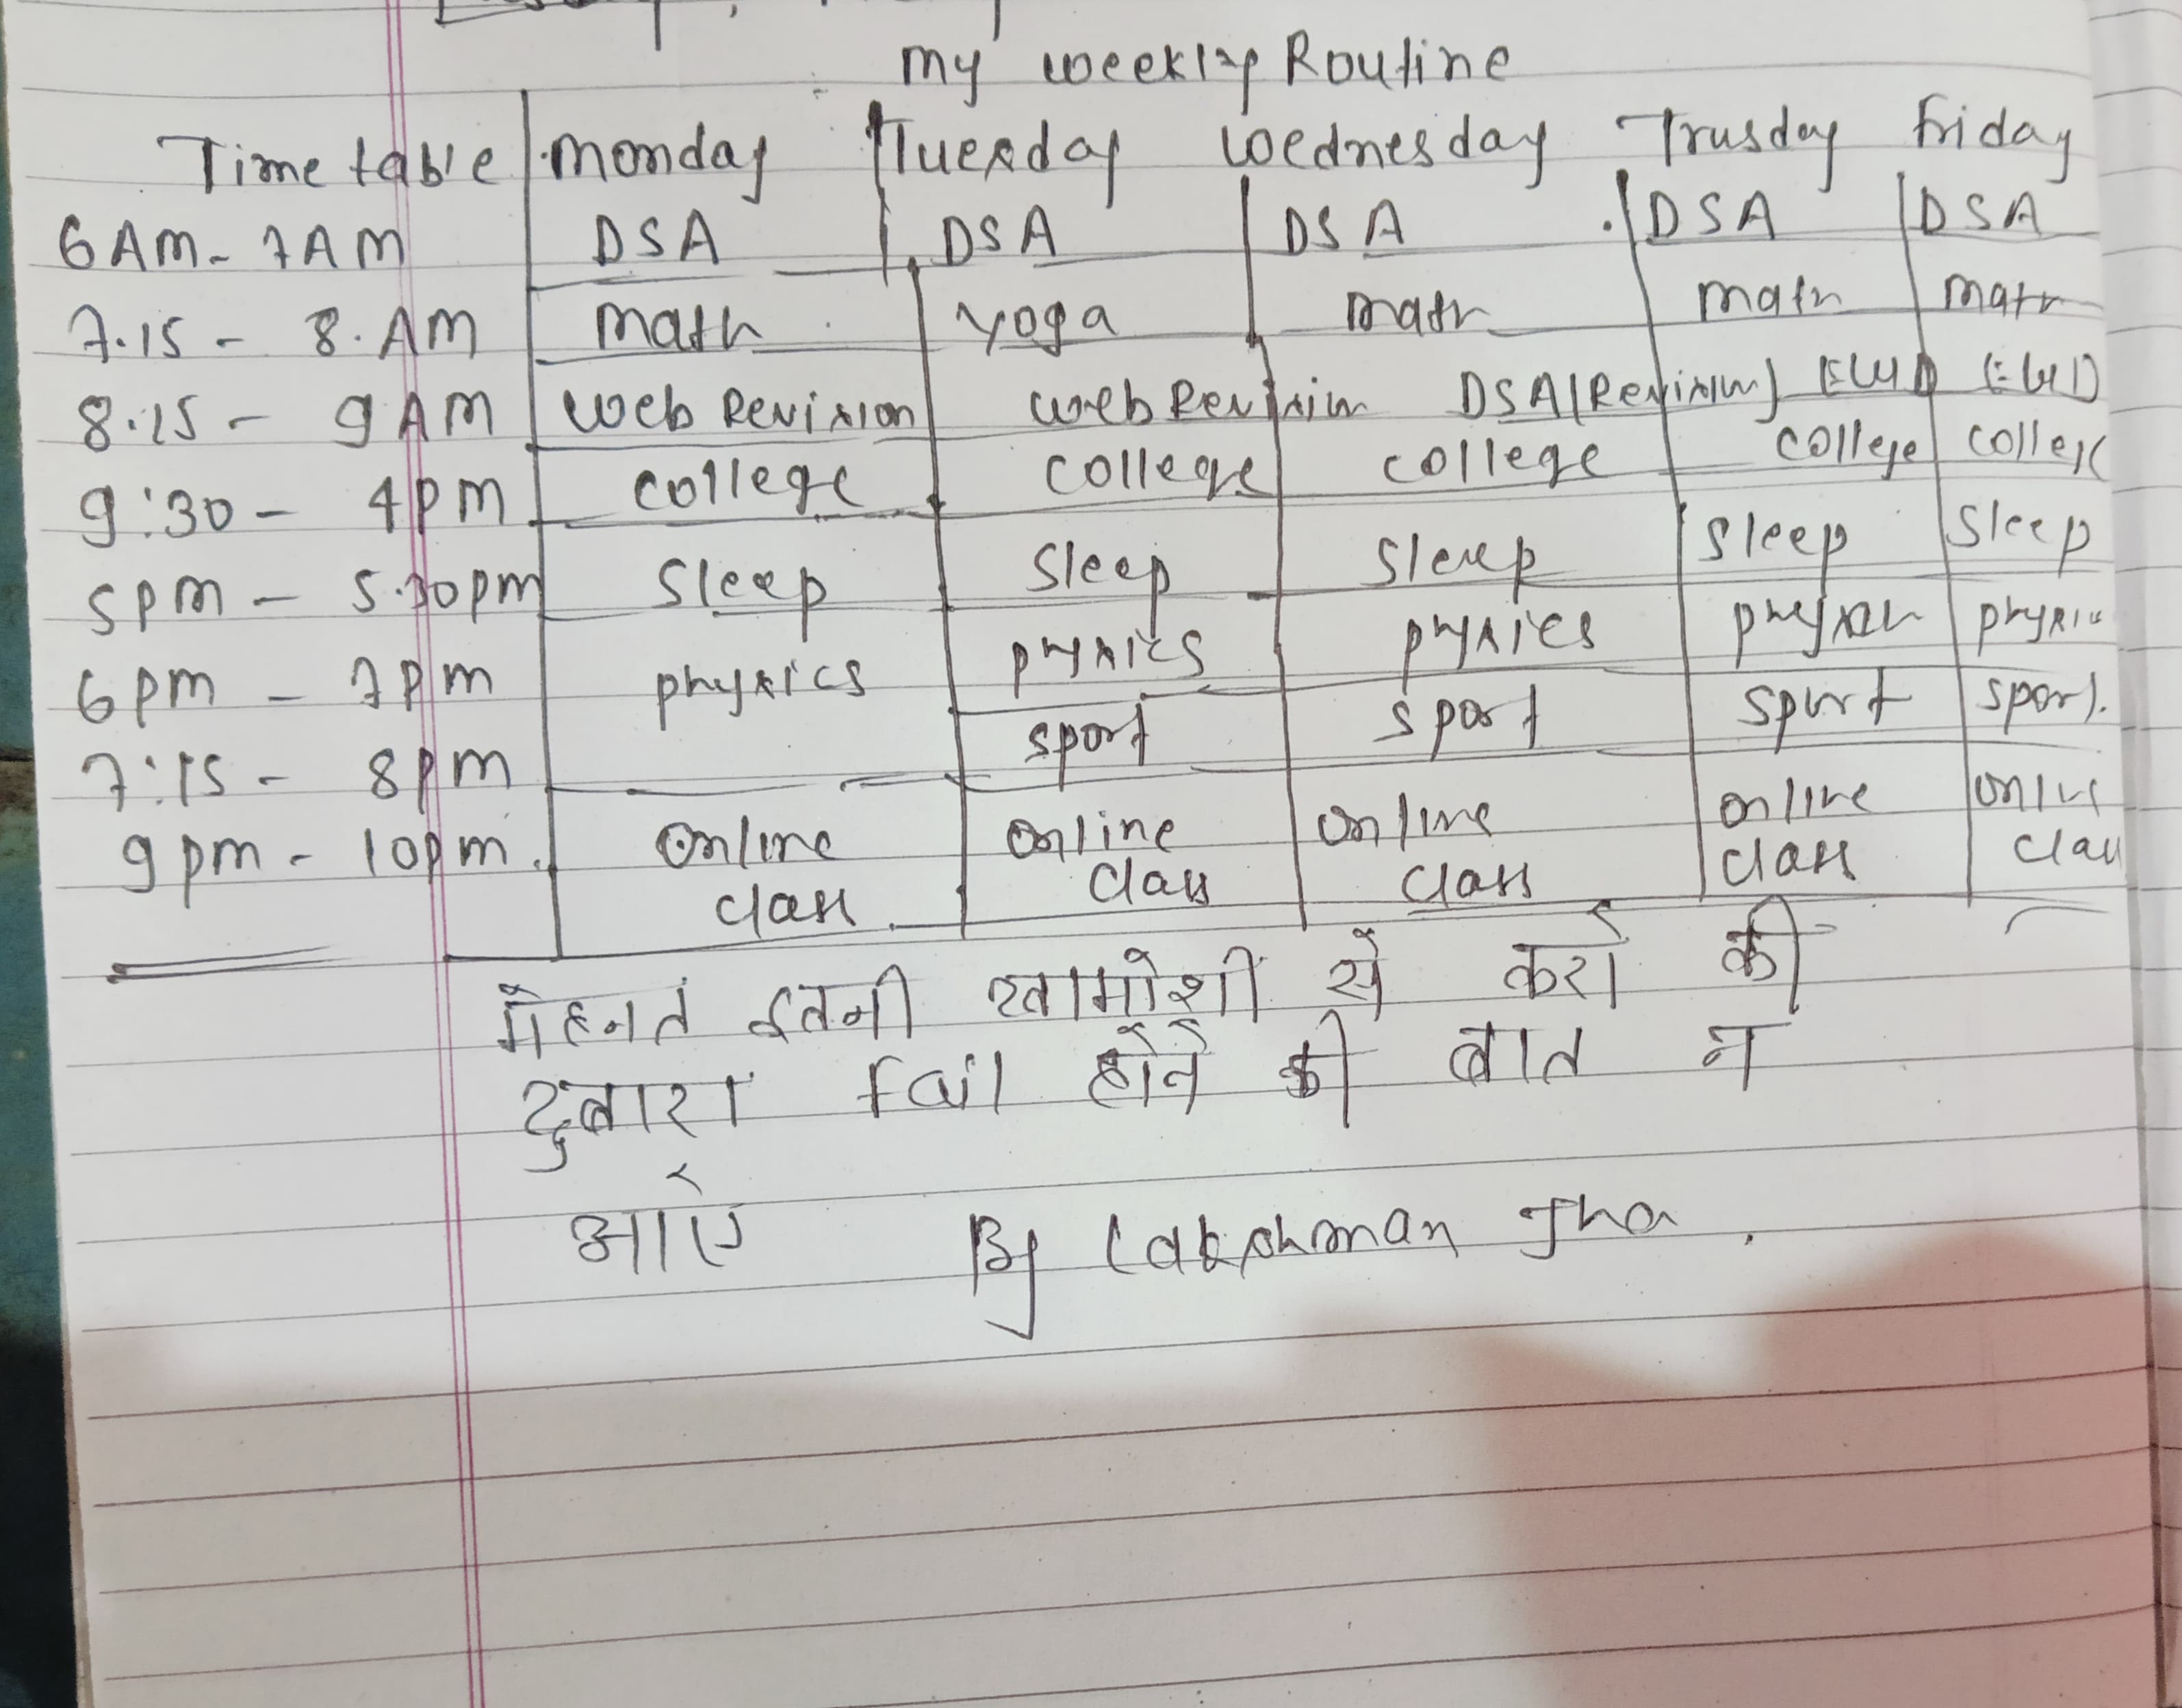 my weekly Routine
Time table monday Tuesday Wednesday Trusday friday
6 AM - 7 AM DSA DSA DSA DSA DSA
7.15 - 8.AM math yoga math math math
8.15 - 9 AM Web Revision web Revision DSA (Revision)
9:30 - 4 pm college college college college college
5 pm - 5.30 pm Sleep Sleep Sleep Sleep Sleep
6 pm - 7 pm physics physics physics physics physics
7:15 - 8 pm sport sport sport sport.
9 pm - 10 pm. online class online class online class online class online class
मेहनत इतनी खामोशी से करो की
दुबारा fail होने की बात न
आऐ By Lakshman Jha.